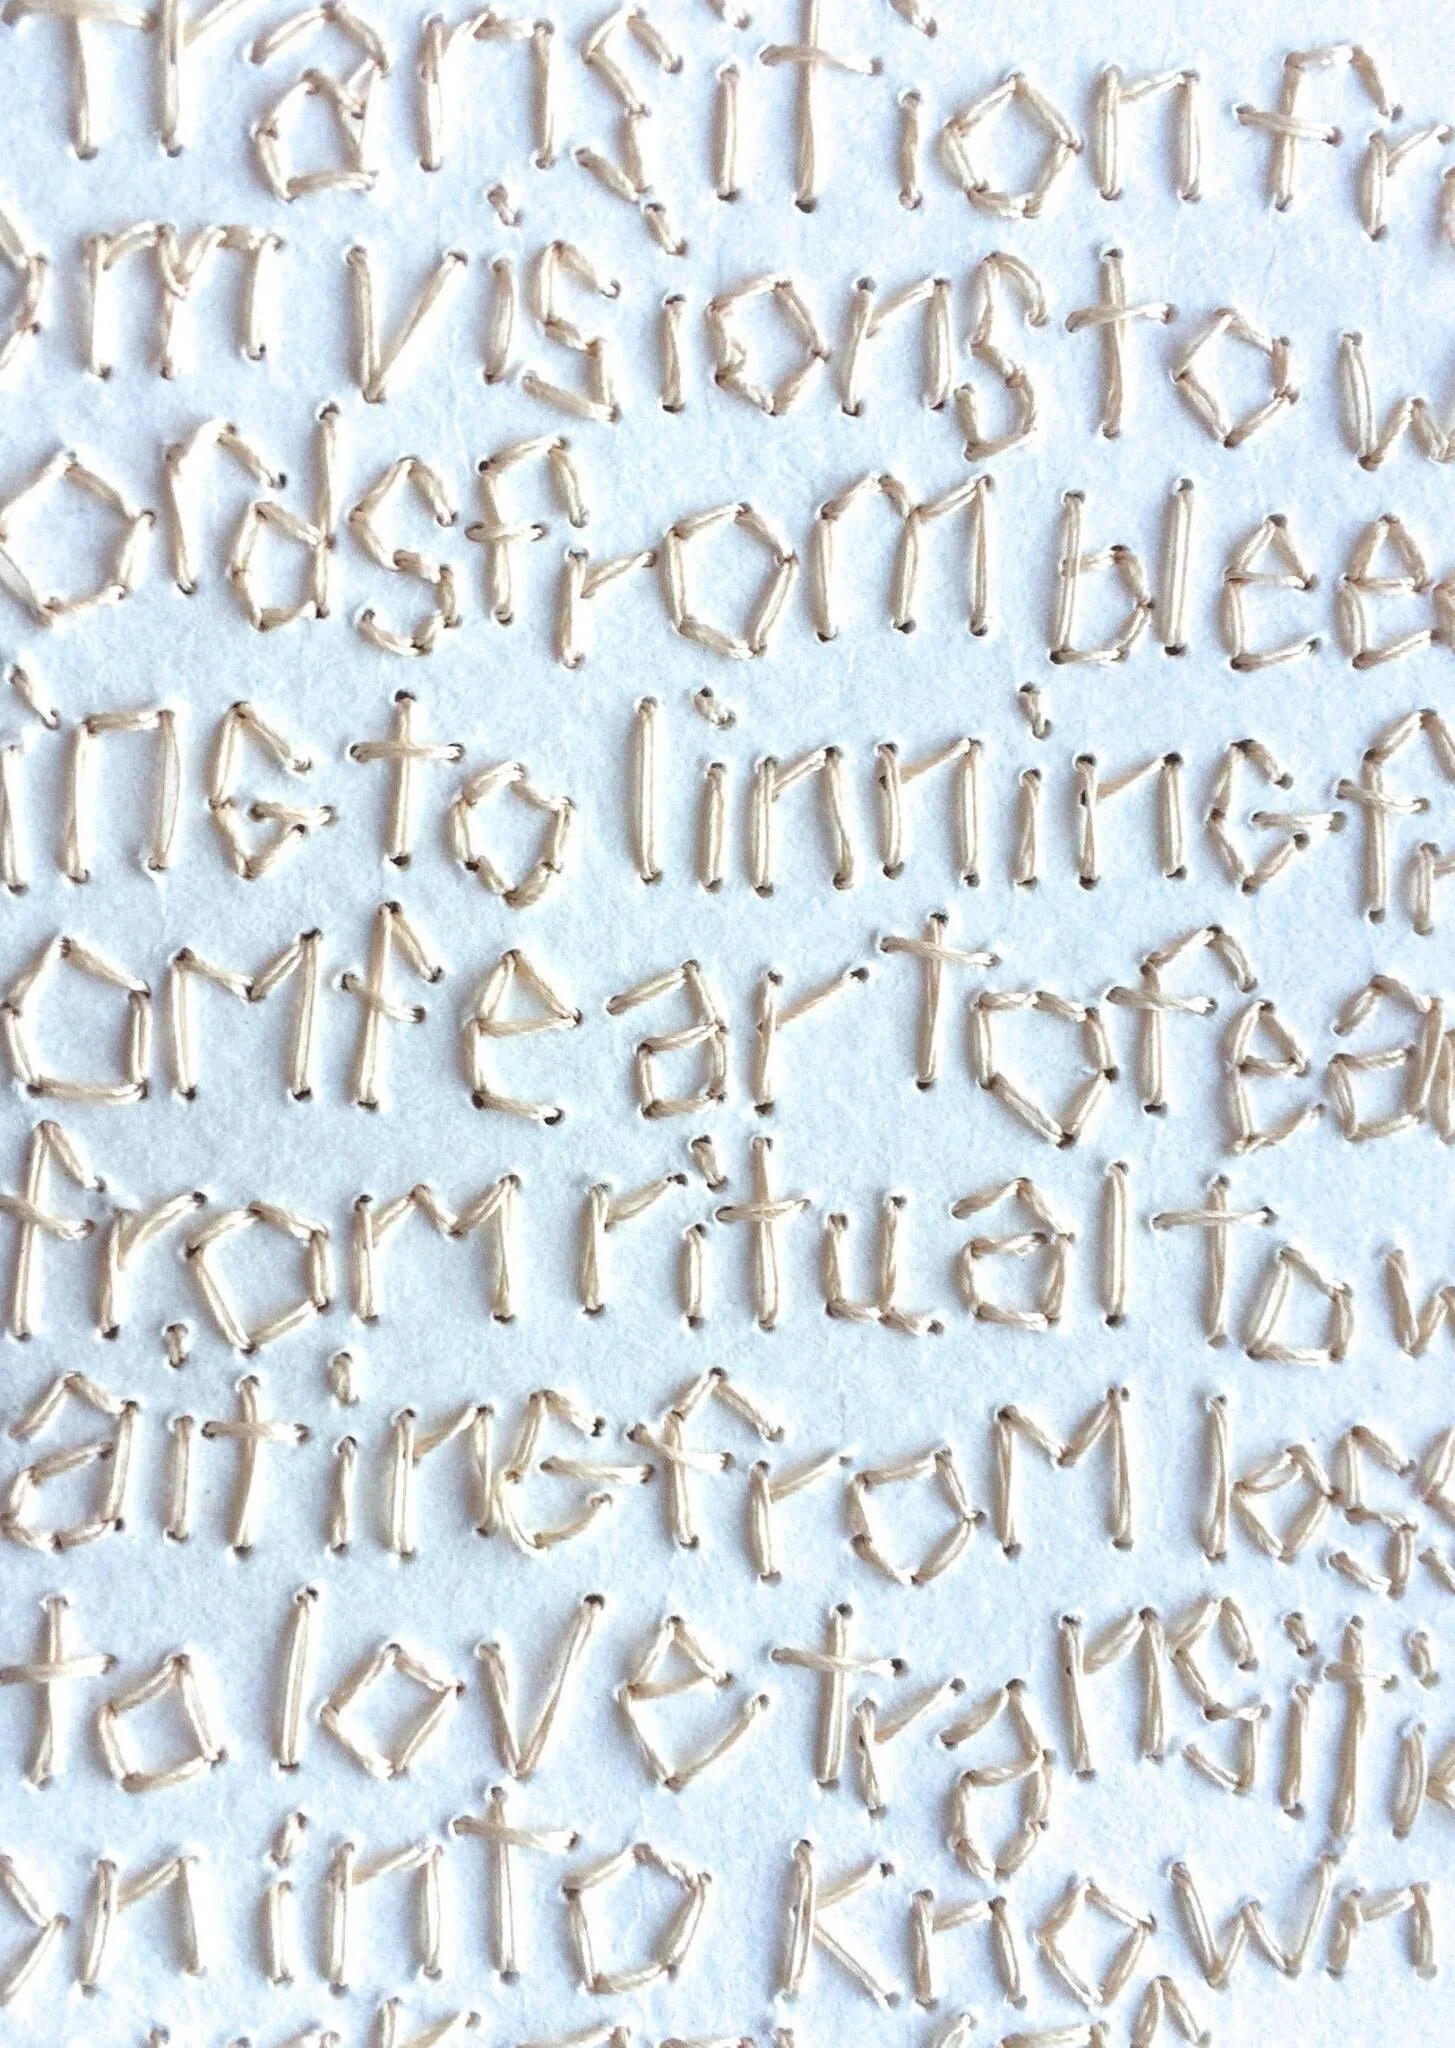 transition fr
om visions to w
ords from blee
ing to linning fr
om fear to fea
from ritual to w
aiting from los
to love transiti
on into known